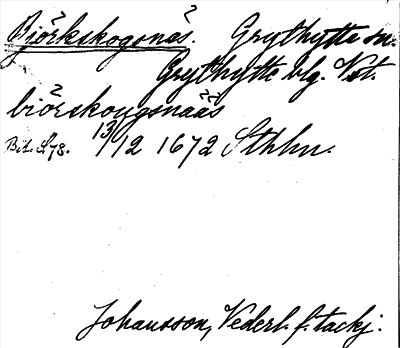 Björkskogsnäs. Grythytte sn.
Grythytte blg. Vst.
biörskougsnääs
Bil. S. 78. 13/12 1672 Sthlm.
Johansson, Vederl. f. tackj.